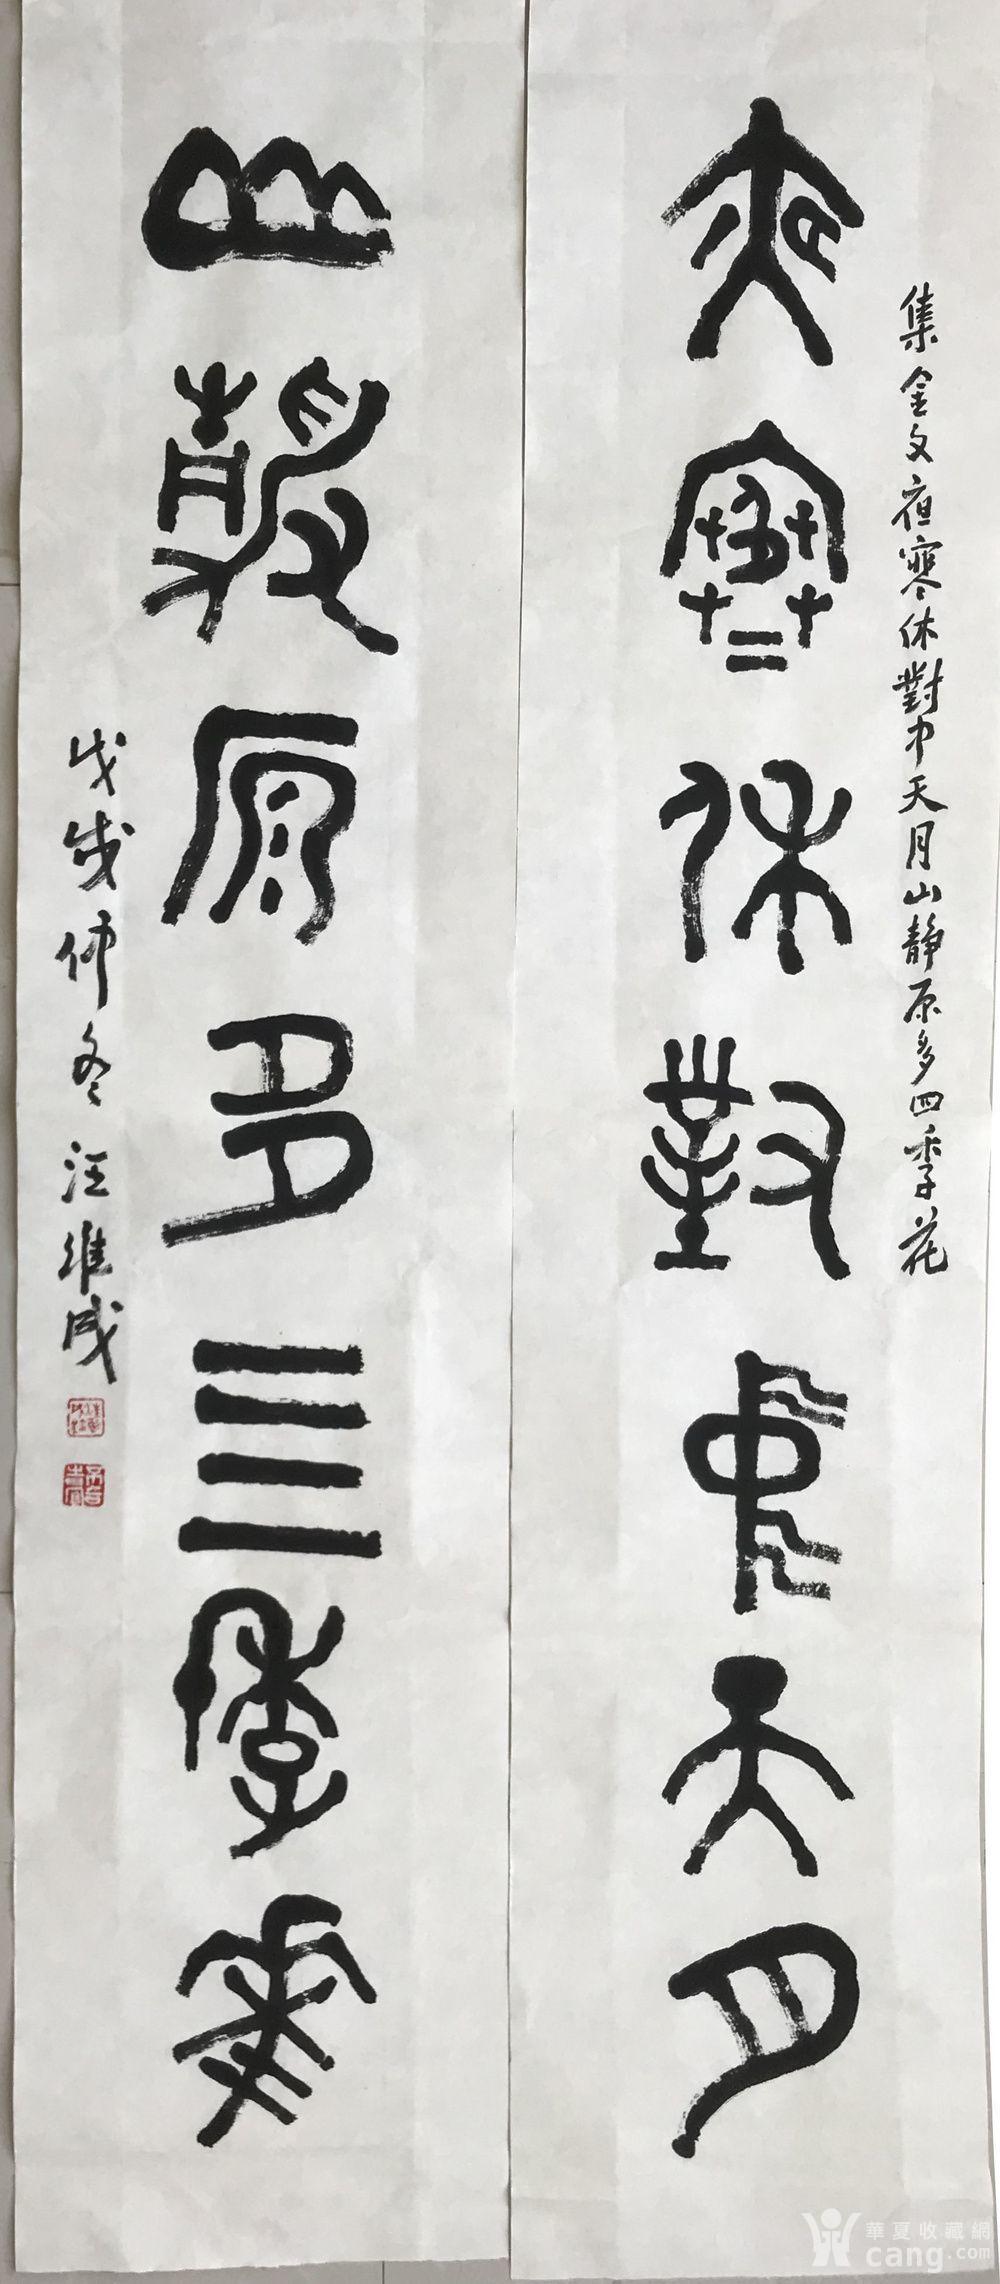 集金文夜寒休對中天月山静原多四季花
夜寒休對中天月
山静原多四季花
戊戌仲冬 汪維成
華夏收藏網
cang.com